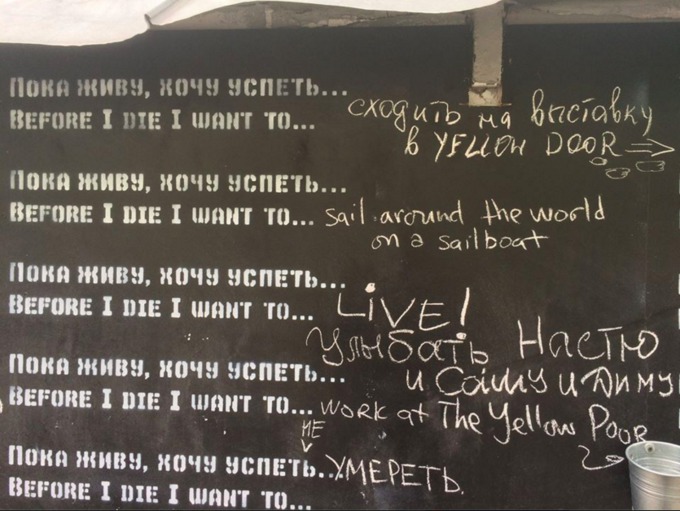 Пока живу, хочу успеть...
Before I die I want to... сходить на выставку
в YELLOW DOOR
Пока живу, хочу успеть...
Before I die I want to... sail around the world
on a sailboat
Пока живу, хочу успеть...
Before I die I want to... LIVE!
Улыбать Настю
Пока живу, хочу успеть... и Сашу и Диму
Before I die I want to... work at The Yellow Door
НЕ
Пока живу, хочу успеть... УМЕРЕТЬ.
Before I die I want to...